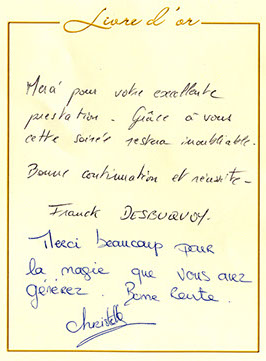 Livre d'or
Merci pour votre excellente
prestation. Grâce à vous
cette soirée restera inoubliable.
Bonne continuation et réussite.
Franck DESBUQUOY.
Merci beaucoup pour
la magie que vous avez
générez. Bonne route.
Christelle